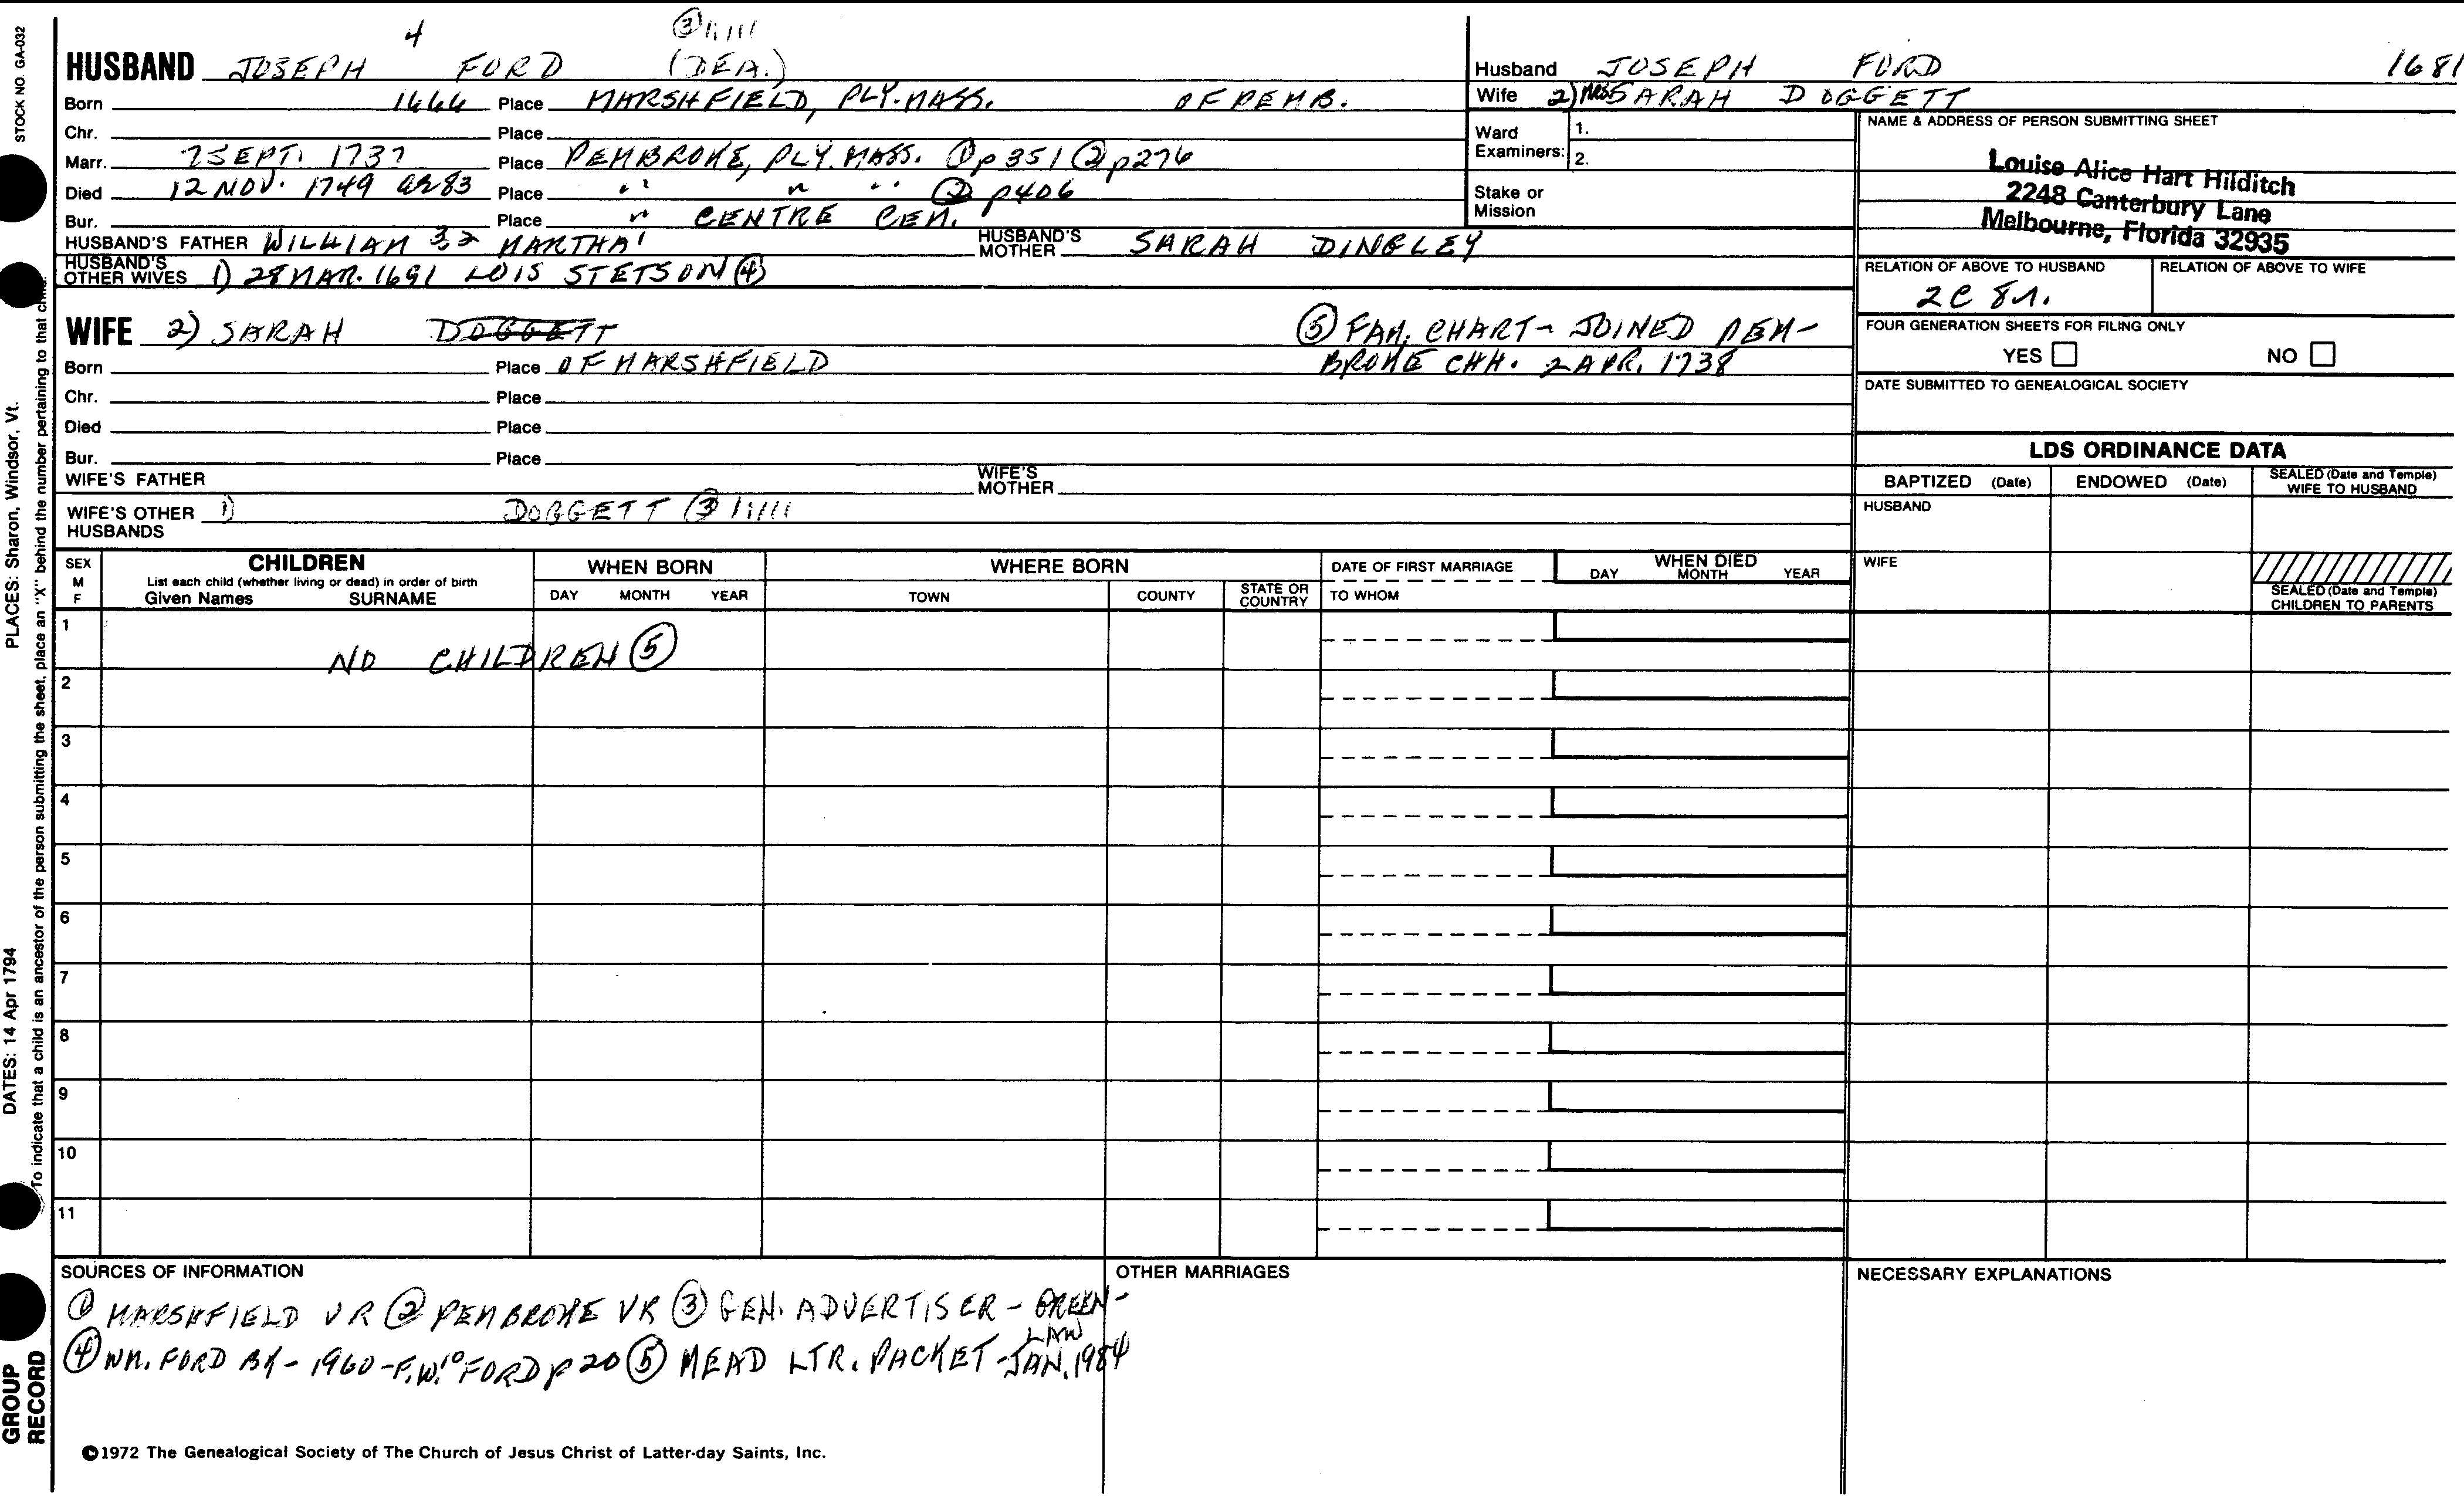 STOCK NO. GA-032
PLACES: Sharon, Windsor, Vt.
DATES: 14 Apr 1794
To indicate that a child is an ancestor of the person submitting the sheet, place an "X" behind the number pertaining to that child.
GROUP RECORD
4 ③
HUSBAND JOSEPH FORD (DEA.)
Born 1666 Place MARSHFIELD, PLY. MASS. OF PEMB.
Chr. Place
Marr. 7 SEPT. 1737 Place PEMBROKE, PLY. MASS. ① p351 ② p276
Died 12 NOV. 1749 ae 83 Place " " " ② p406
Bur. Place " CENTRE CEM.
HUSBAND'S FATHER WILLIAM 3,2 MARTHA1 HUSBAND'S MOTHER SARAH DINGLEY
HUSBAND'S OTHER WIVES 1) 28 MAR. 1691 LOIS STETSON ④
WIFE 2) SARAH DOGGETT ⑤ FAM. CHART - JOINED PEM-
Born Place OF MARSHFIELD BROKE CHH. 2 APR. 1738
Chr. Place
Died Place
Bur. Place
WIFE'S FATHER WIFE'S MOTHER
WIFE'S OTHER HUSBANDS 1) DOGGETT ③
Husband JOSEPH FORD 1681
Wife 2) MRS SARAH DOGGETT
Ward Examiners: 1.
2.
Stake or Mission
NAME & ADDRESS OF PERSON SUBMITTING SHEET
Louise Alice Hart Hilditch
2248 Canterbury Lane
Melbourne, Florida 32935
RELATION OF ABOVE TO HUSBAND RELATION OF ABOVE TO WIFE
2C 8r.
FOUR GENERATION SHEETS FOR FILING ONLY
YES NO
DATE SUBMITTED TO GENEALOGICAL SOCIETY
LDS ORDINANCE DATA
BAPTIZED (Date) ENDOWED (Date) SEALED (Date and Temple) WIFE TO HUSBAND
HUSBAND
WIFE
SEALED (Date and Temple) CHILDREN TO PARENTS
SEX M F
CHILDREN
List each child (whether living or dead) in order of birth
Given Names SURNAME
WHEN BORN
DAY MONTH YEAR
WHERE BORN
TOWN COUNTY STATE OR COUNTRY
DATE OF FIRST MARRIAGE
TO WHOM
WHEN DIED
DAY MONTH YEAR
1
NO CHILDREN ⑤
2
3
4
5
6
7
8
9
10
11
SOURCES OF INFORMATION
① MARSHFIELD VR ② PEMBROKE VR ③ GEN. ADVERTISER - GREEN-
LAW
④ WM. FORD BK - 1960 - F.W.10 FORD p 20 ⑤ MEAD LTR. PACKET - JAN. 1984
OTHER MARRIAGES
NECESSARY EXPLANATIONS
©1972 The Genealogical Society of The Church of Jesus Christ of Latter-day Saints, Inc.